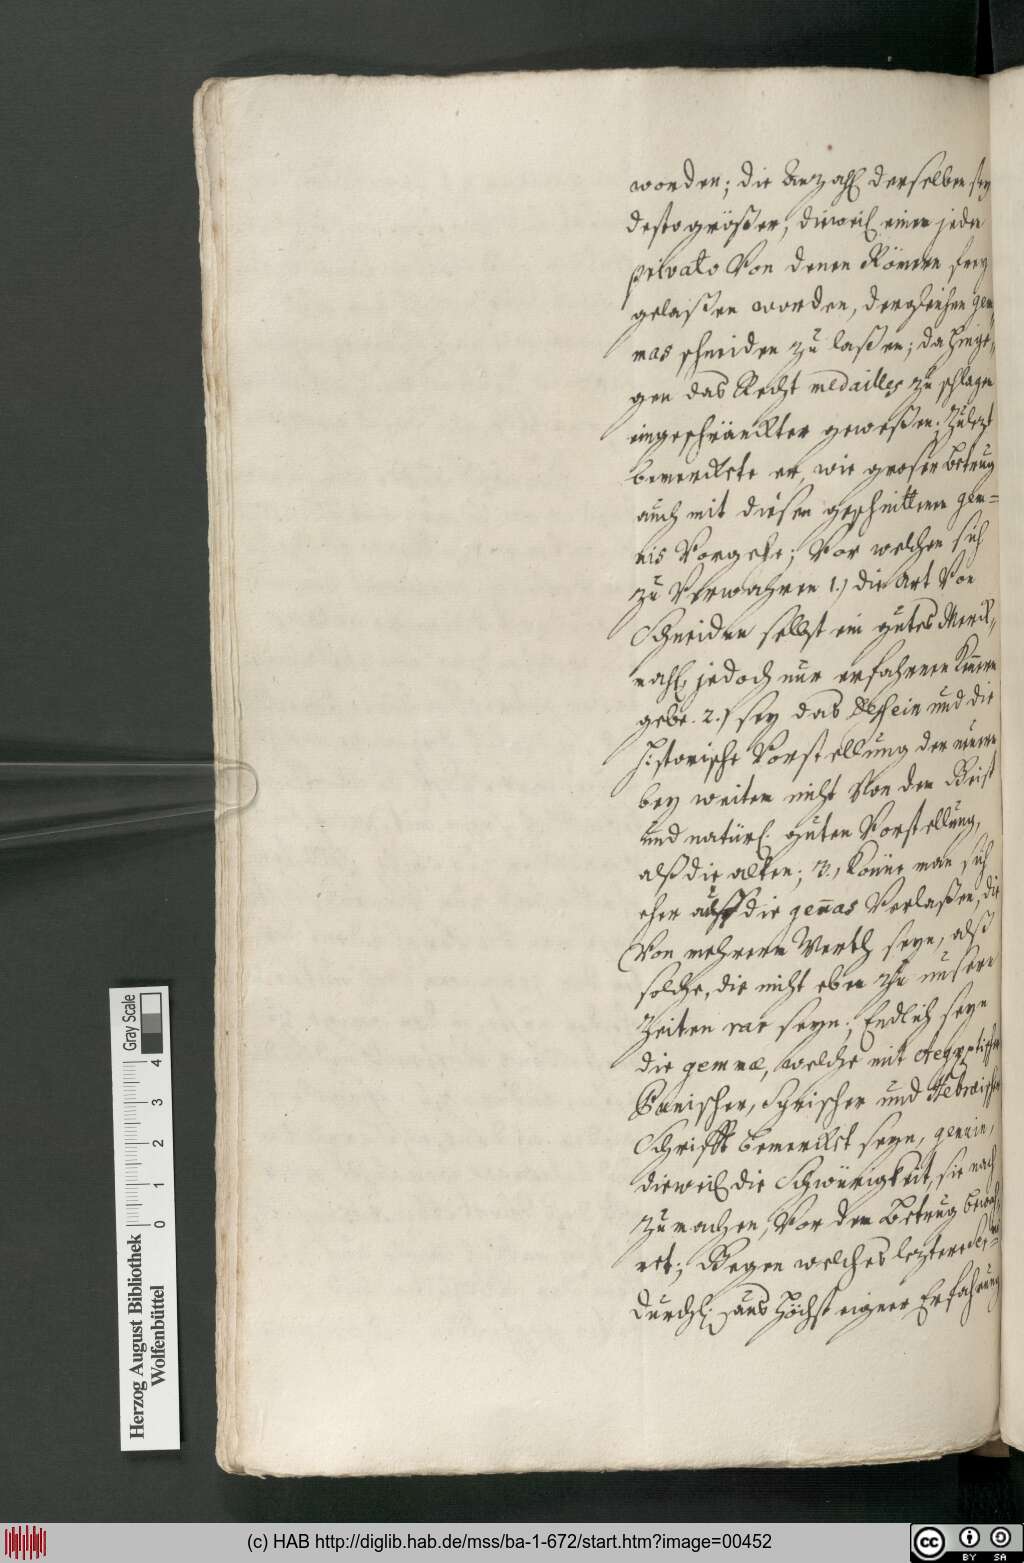 worden; die Anzahl derselben sey
desto größer, dieweil einem jeden
privato Von denen Römern frey
gelaßen worden, dergleichen gem-
mas schneiden zu laßen; da hinge-
gen das Recht medailles zu schlagen
eingeschränckter geweßen; Zulezt
bemerckete er, wie groser Betrug
auch mit diesen geschnittenen gem=
nis Vorgehe; Vor welchen sich
zu Verwahren 1.) die Art Von
Schneiden selbst ein gutes Merck-
mahl, jedoch nur erfahrnen Kennern
gebe. 2.) sey das Dessein und die
Historische Vorstellung der neuern
bey weiten nicht Von dem Geist
und natürl. guten Vorstellung,
alß die alten; 3., Könne man sich
eher auff die gemas Verlaßen, die
Von mehrern Werth seyn, alß
solche, die nicht eben zu unsern
Zeiten rar seyn; Endlich seyn
die gemmæ, welche mit Aegyptischen
Punischer, Syrischer und Hebräischer
Schrifft bemercket seyn, genuin,
dieweil die Schwürigkeit, sie nach
zumachen, Vor dem Betrug bewah-
ret; Gegen welches leztere
Durchl. aus Höchst eigner Erfahrung
Herzog August Bibliothek
Wolfenbüttel
0 1 2 3 4
Gray Scale
(c) HAB http://diglib.hab.de/mss/ba-1-672/start.htm?image=00452
cc BY SA